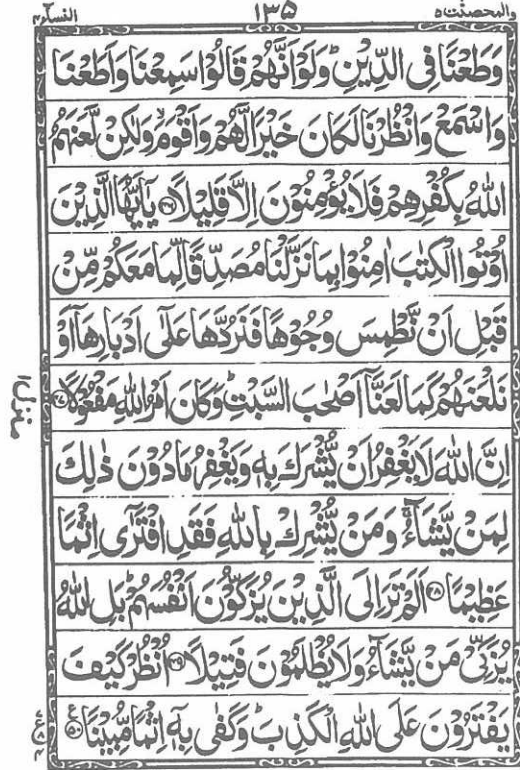 والمحصنت ۵
۱۳۵
النسآء ۴
وَطَعْنًا فِی الدِّیْنِ ؕ وَلَوْ اَنَّهُمْ قَالُوْا سَمِعْنَا وَاَطَعْنَا
وَاسْمَعْ وَانْظُرْنَا لَكَانَ خَیْرًا لَّهُمْ وَاَقْوَمَ ۙ وَلٰكِنْ لَّعَنَهُمُ
اللّٰهُ بِكُفْرِهِمْ فَلَا یُؤْمِنُوْنَ اِلَّا قَلِیْلًا ﴿۴۶﴾ یٰۤاَیُّهَا الَّذِیْنَ
اُوْتُوا الْكِتٰبَ اٰمِنُوْا بِمَا نَزَّلْنَا مُصَدِّقًا لِّمَا مَعَكُمْ مِّنْ
قَبْلِ اَنْ نَّطْمِسَ وُجُوْهًا فَنَرُدَّهَا عَلٰۤی اَدْبَارِهَاۤ اَوْ
نَلْعَنَهُمْ كَمَا لَعَنَّاۤ اَصْحٰبَ السَّبْتِ ؕ وَكَانَ اَمْرُ اللّٰهِ مَفْعُوْلًا ﴿۴۷﴾
اِنَّ اللّٰهَ لَا یَغْفِرُ اَنْ یُّشْرَكَ بِهٖ وَیَغْفِرُ مَا دُوْنَ ذٰلِكَ
لِمَنْ یَّشَآءُ ۚ وَمَنْ یُّشْرِكْ بِاللّٰهِ فَقَدِ افْتَرٰۤی اِثْمًا
عَظِیْمًا ﴿۴۸﴾ اَلَمْ تَرَ اِلَی الَّذِیْنَ یُزَكُّوْنَ اَنْفُسَهُمْ ؕ بَلِ اللّٰهُ
یُزَكِّیْ مَنْ یَّشَآءُ وَلَا یُظْلَمُوْنَ فَتِیْلًا ﴿۴۹﴾ اُنْظُرْ كَیْفَ
یَفْتَرُوْنَ عَلَی اللّٰهِ الْكَذِبَ ؕ وَكَفٰی بِهٖۤ اِثْمًا مُّبِیْنًا ﴿۵۰﴾ ع
منزل ۱